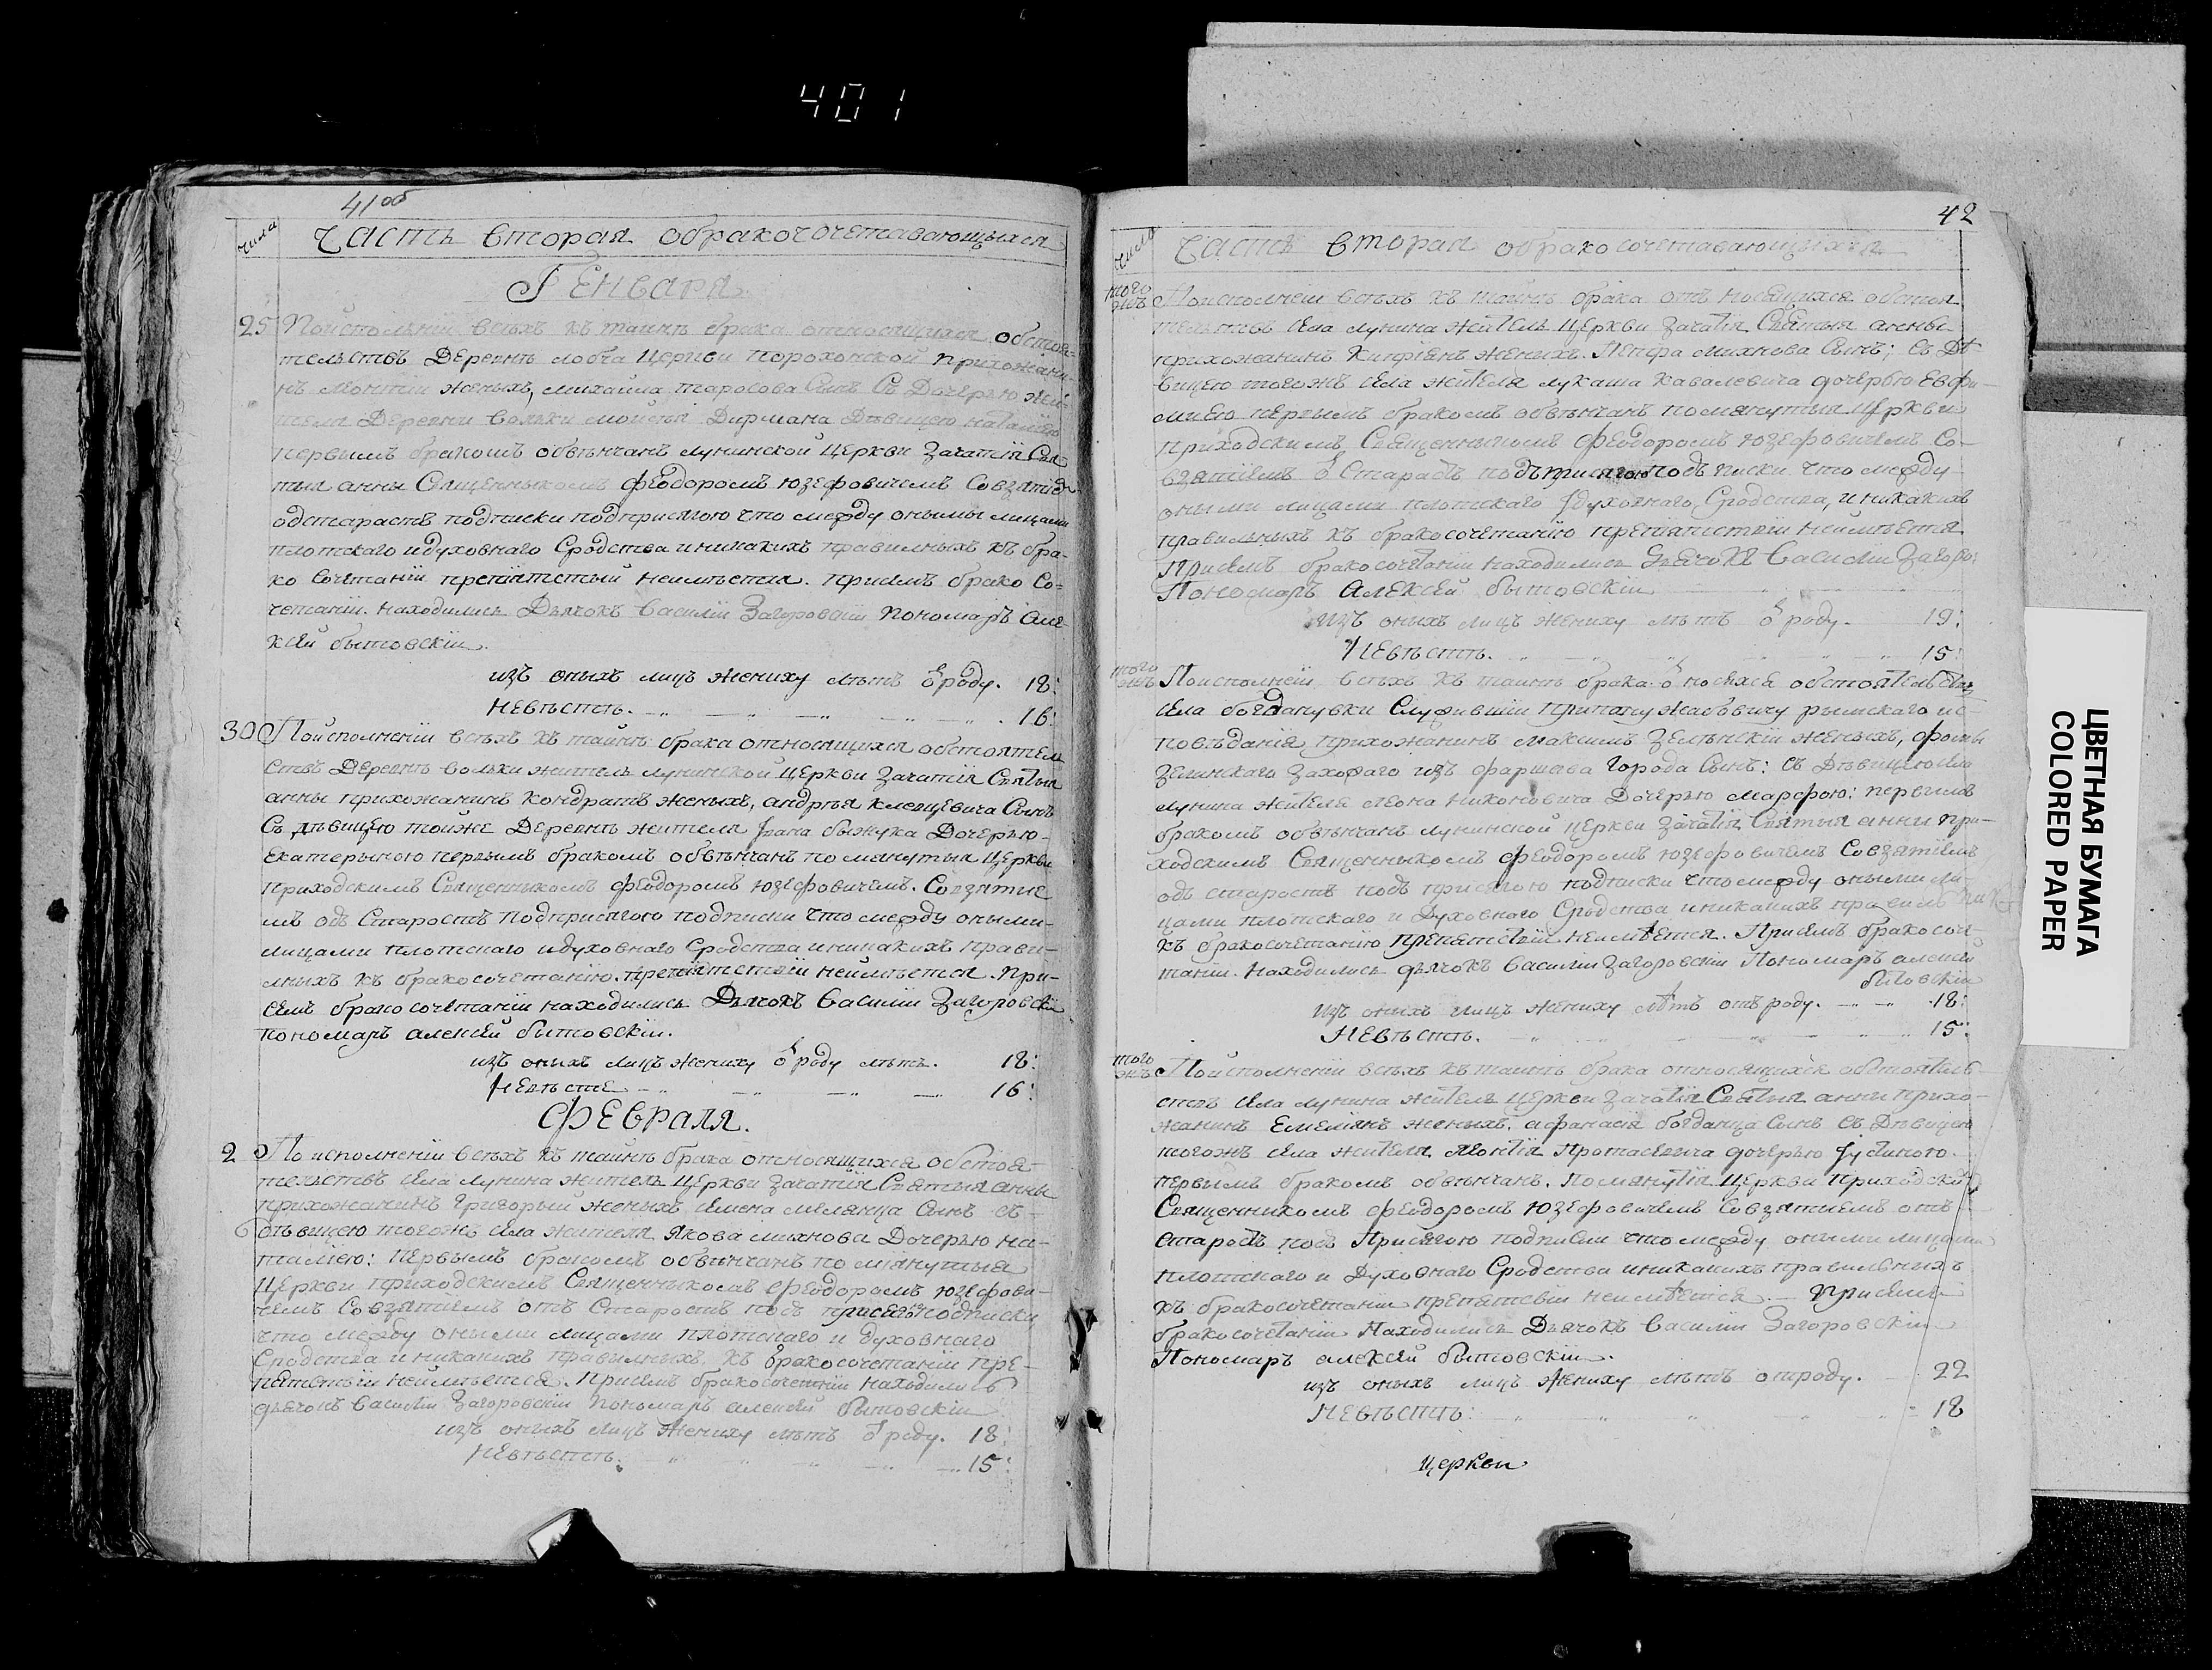 401
41 об
числа
Часть вторая обракочочетавающыхся
Генваря
25 Поисполънiи всѣхъ къ таинѣ брака относящихся обстоя-
тельствъ Деревнѣ лобча Церкви порохонской прихожани-
нъ леонтiи женыхъ, михаила тарасова Сынъ Съ Дочерью жи-
теля Деревни вольки моисея Дирмана Дѣвицею наталiею
первымъ бракомъ обвѣнчанъ лунинской Церкви Зачатiя Свя
тыя анны Священныкомъ феодоромъ юзефовичемъ Совзятiемъ
одстарастъ подписки подприсягою что между онымы лицами
плотскаго идуховнаго Сродства иникакихъ правилныхъ къ бра-
ко Сочетанiи препятстый неимѣется. присемъ брако Со-
четанiи. находились Дьячокъ Василiи Загоровскiи пономаръ але-
ксей бытовскiи.
изъ оныхъ лицъ жениху лѣтъ отроду. 18:
Невѣстѣ. 16:
30 Поисполненiи всѣхъ къ таинѣ брака относящихся обстоятел
ствъ Деревнѣ вольки житель лунинской Церкви Зачатiя Святыя
анны прихожанинъ Кондратъ женыхъ, андрѣя клевцевича Сынъ
Съ дѣвицею тойже Деревнѣ жителя Ѵвана быжука Дочерью-
екатерыною первымъ бракомъ обвѣнчанъ помянутыя Церкви
приходскимъ Священныкомъ феодоромъ юзефовичемъ. Совзятие
мъ одъ Старостъ подприсягою подписки что между оными-
лицами плотскаго идуховнаго Сродства иникакихъ прави-
лныхъ къ бракосочетанiю. препятстей неимѣется. При-
семъ брако сочетанiи находились Дьячокъ Василiи Загоровскiи
пономаръ алексей бытовскiи.
изъ оныхъ лицъ жениху отроду лѣтъ. 18:
Невѣсте 16:
Февраля.
2 По исполненiи всѣхъ къ таинѣ брака относящихся обстоя-
тельствъ села лунина житель Церкви зачатiя Святыя анны
прихожанинъ Григорый женыхъ, семена мелянца Сынъ съ-
дѣвицею тогожъ села жителя Якова михнова Дочерью на-
талiею: первымъ бракомъ обвѣнчанъ помянутыя
Церкви приходскимъ Священныкомъ феодоромъ юзефови-
чемъ Совзятiемъ отъ Старостъ подъ присягою подписки
что между оными лицами плотскаго и духовнаго
Сродства и никакихъ правилныхъ, къ бракосочетанiи пре-
пятстый неимѣется. Присемъ бракосочетанiи находились
дьячокъ Василiи Загоровскiи Пономаръ алексей бытовскiи
изъ оныхъ лицъ жениху лѣтъ отроду. 18:
Невѣстѣ. 15:
42
числа
Часть вторая обракосочетавающихся
того жъ Поисполненiи всѣхъ къ таинѣ брака отъ носящихся обстоя
тельствъ села лунина житель Церкви Зачатiя Святыя анны
прихожанинъ женихъ. михнова Сынъ; съ дѣ-
вицею тогожъ села жителя лукаша Кавалевича дочерью Евфи-
миею первымъ бракомъ обвѣнчанъ помянутыя Церкви
Приходскимъ Священныкомъ феодоромъ юзефовичемъ Со-
взятiемъ отъ Старостъ подъ присягою подъ писки. что между-
оными лицами плотскаго Ѵдуховнаго, Сродства, иникакихъ
правильныхъ къ бракосочетанiю препятствiи неимѣется
Присемъ бракосочетанiи находились Дьячокъ Василiи Загоро:
Пономаръ Алексей бытовскiи
изъ оныхъ лицъ жениху лѣтъ отроду. 19:
Невѣстѣ. 15:
того жъ Поисполненiи, всѣхъ къ таинѣ брака обстоятельствъ
села богдануўки Служившiи припану жабовичу рымскаго ис-
повѣданiя, прихожанинъ максимъ Зелѣнскiи женыхъ, фомы
Зелинскаго Захожаго изъ города Сынъ: съ Дѣвицею села
лунина жителя леона никоновича Дочерью марфою: первымъ
бракомъ обвѣнчанъ лунинской Церкви Зачатiя Святыя анны при-
ходскимъ Священныкомъ феодоромъ юзефовичемъ Совзятiемъ
одъ старостъ подъ присягою подписки чтомежду оными ли-
цами плотскаго и Духовнаго Сродства иникакихъ правилъ
къ бракосочетанiю препятствiи неимѣется. Присемъ бракосоче-
танiи. Находились дьячокъ Василiи Загоровскiи Пономаръ алексей
бытовскiи
изъ оныхъ лицъ жениху лѣтъ отъ роду. 18:
Невѣстѣ. 15:
того жъ Поисполненiи всѣхъ къ таинѣ брака относящихся обстоятель-
ствъ села лунина житель Церкви зачатiя Святыя анны прихо-
жанинъ Емелiянъ женыхъ, афанасiя богданца Сынъ съ Дѣвицею
тогожъ села жителя леонтiя Протасевича дочерью Ѵустиною.
первымъ бракомъ обвѣнчанъ. Помянутiя Церкви Приходскимъ
Священникомъ феодоромъ Юзефовичемъ Совзятиемъ отъ-
старостъ подъ Присягою подписки что между оными лицами
плотскаго и Духовнаго Сродства иникакихъ правильныхъ
къ бракосочетанiи препятсвiи неимѣется. - Присемъ
бракосочетанiи Находились Дьячокъ Василiи Загоровскiи
Пономаръ алексей бытовскiи.
изъ оныхъ лицъ жениху лѣтъ отроду. 22
Невѣстѣ: 18
Церкви
ЦВЕТНАЯ БУМАГА
COLORED PAPER